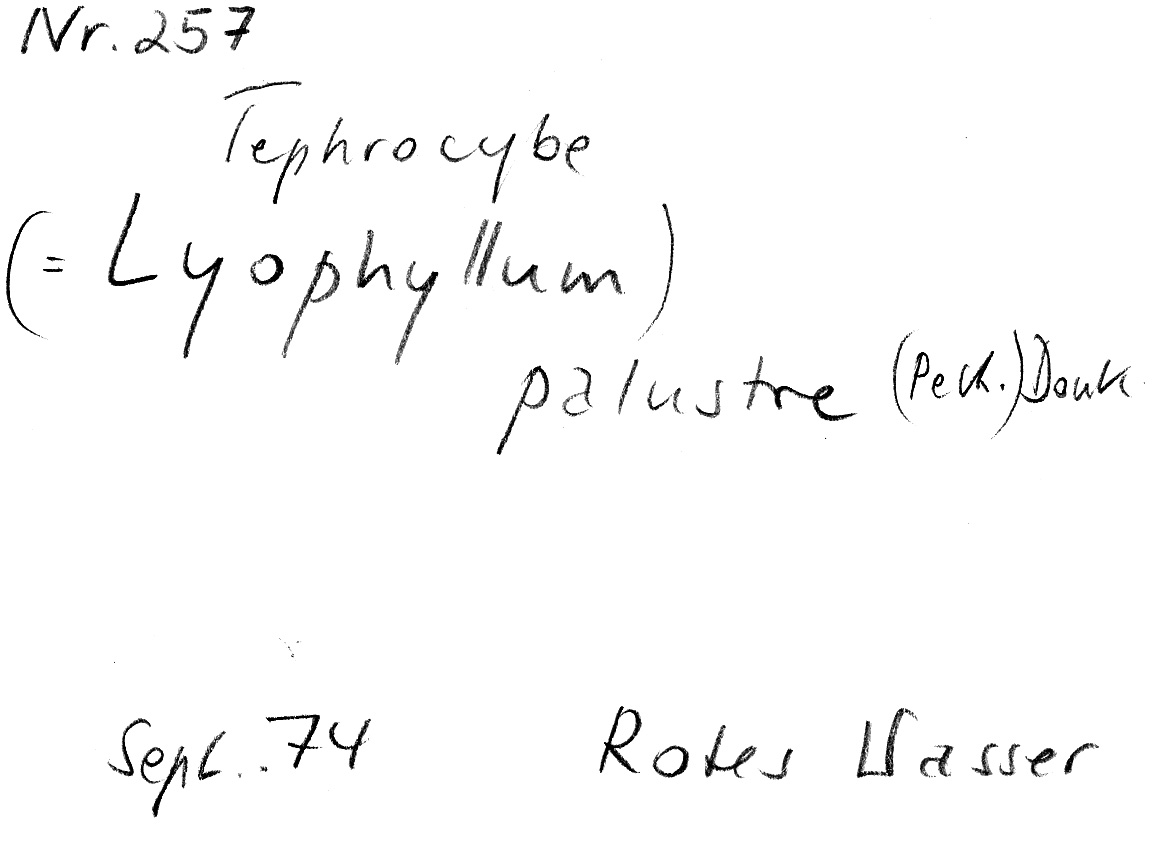 Nr. 257
Tephrocybe
(= Lyophyllum)
palustre (Peck.) Donk
Sept. 74 Rotes Wasser